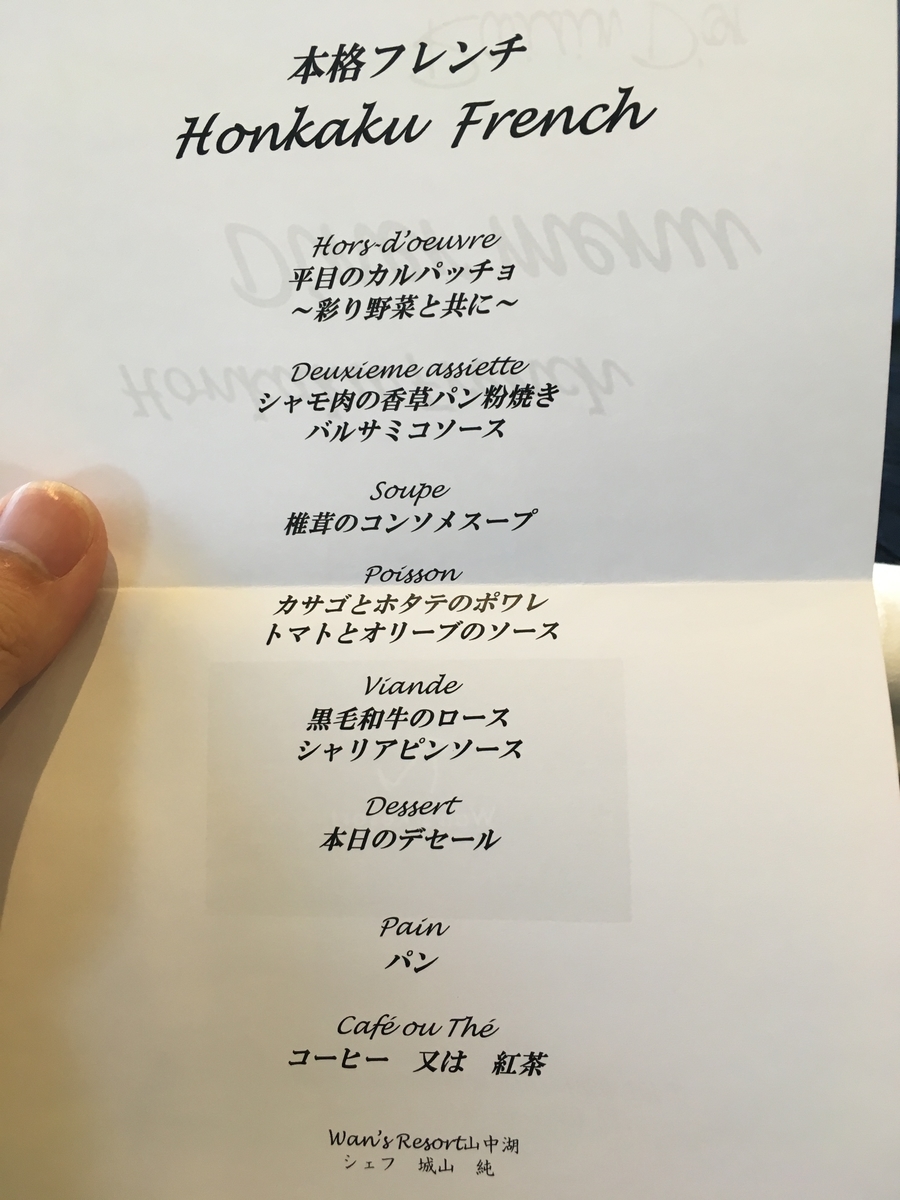 本格フレンチ
Honkaku French
Hors-d'oeuvre
平目のカルパッチョ
～彩り野菜と共に～
Deuxieme assiette
シャモ肉の香草パン粉焼き
バルサミコソース
Soupe
椎茸のコンソメスープ
Poisson
カサゴとホタテのポワレ
トマトとオリーブのソース
Viande
黒毛和牛のロース
シャリアピンソース
Dessert
本日のデセール
Pain
パン
Café ou Thé
コーヒー　又は　紅茶
Wan's Resort山中湖
シェフ　城山　純